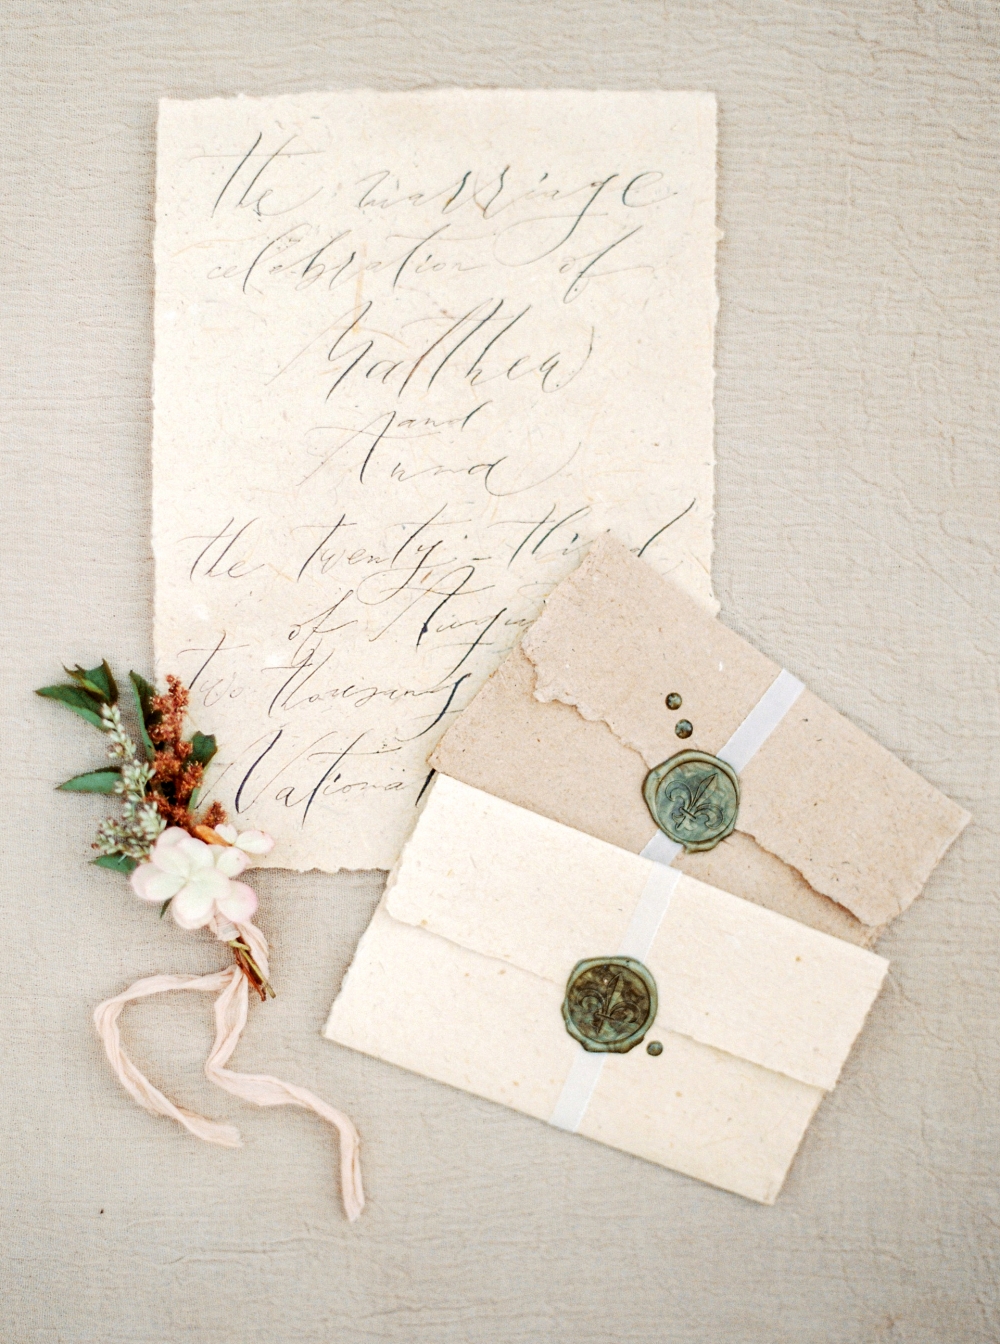 the marriage
celebration of
Matthew
and
Anna
the twenty-third
of
two thousand
National